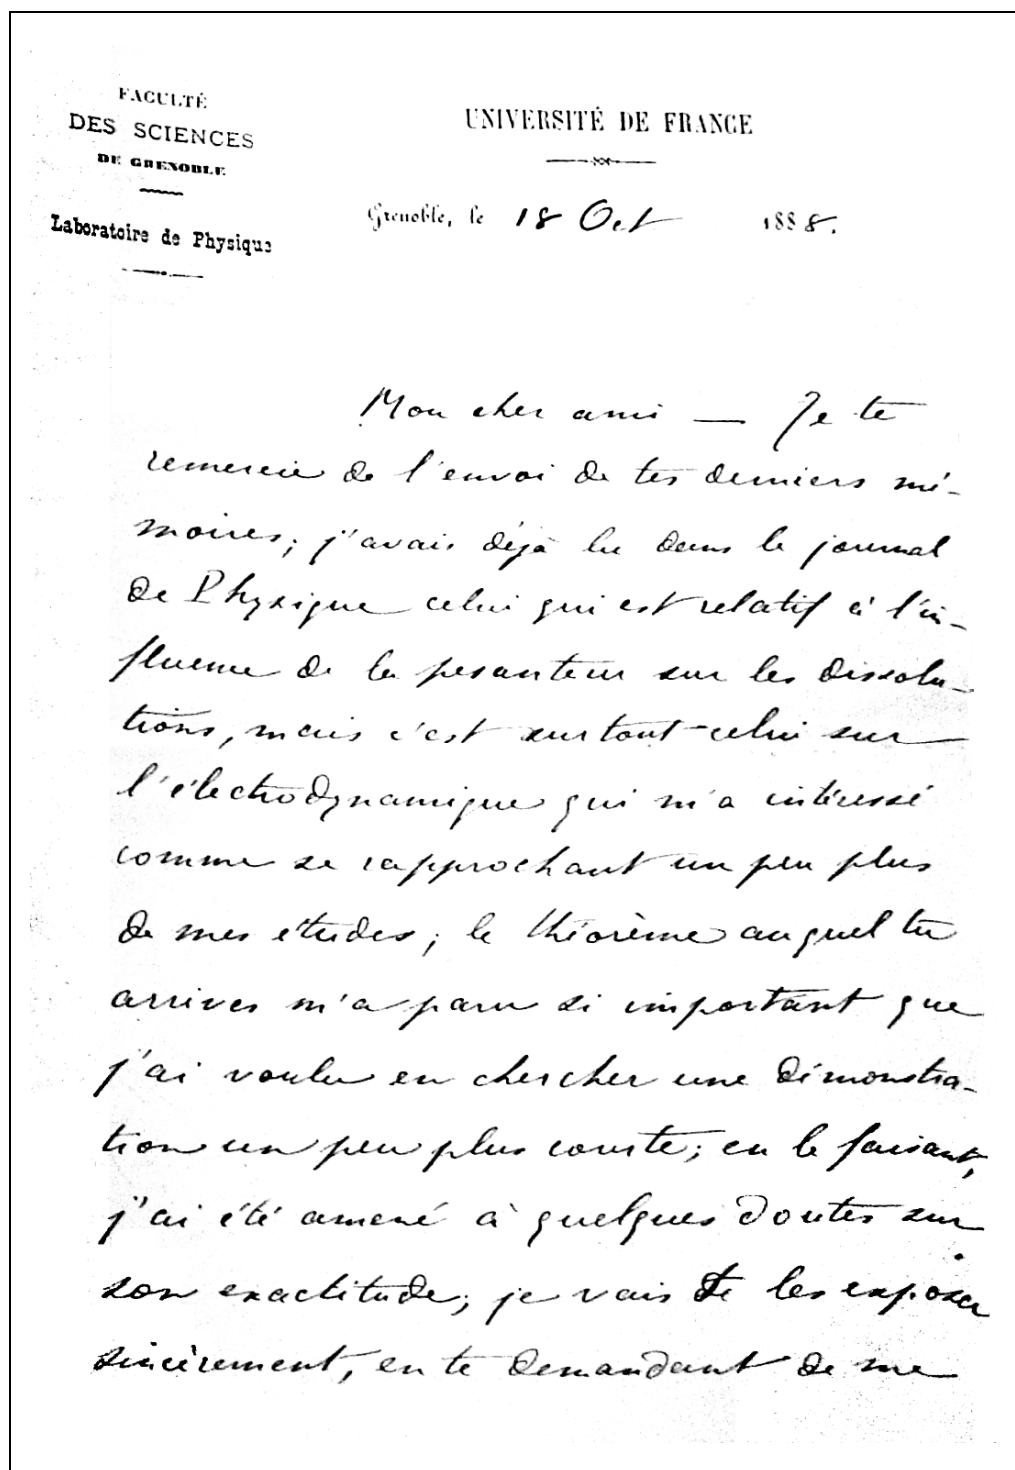 FACULTÉ
DES SCIENCES
DE GRENOBLE
Laboratoire de Physique
UNIVERSITÉ DE FRANCE
Grenoble, le 18 Oct 1888.
Mon cher ami — Je te
remercie de l'envoi de tes derniers mé-
moires; j'avais déjà lu dans le journal
de Physique celui qui est relatif à l'in-
fluence de la pesanteur sur les dissolu-
tions, mais c'est surtout celui sur
l'électrodynamique qui m'a intéressé
comme se rapprochant un peu plus
de mes études; le théorème auquel tu
arrives m'a paru si important que
j'ai voulu en chercher une démonstra-
tion un peu plus courte; en le faisant,
j'ai été amené à quelques doutes sur
son exactitude; je vais te les exposer
sincèrement, en te demandant de me